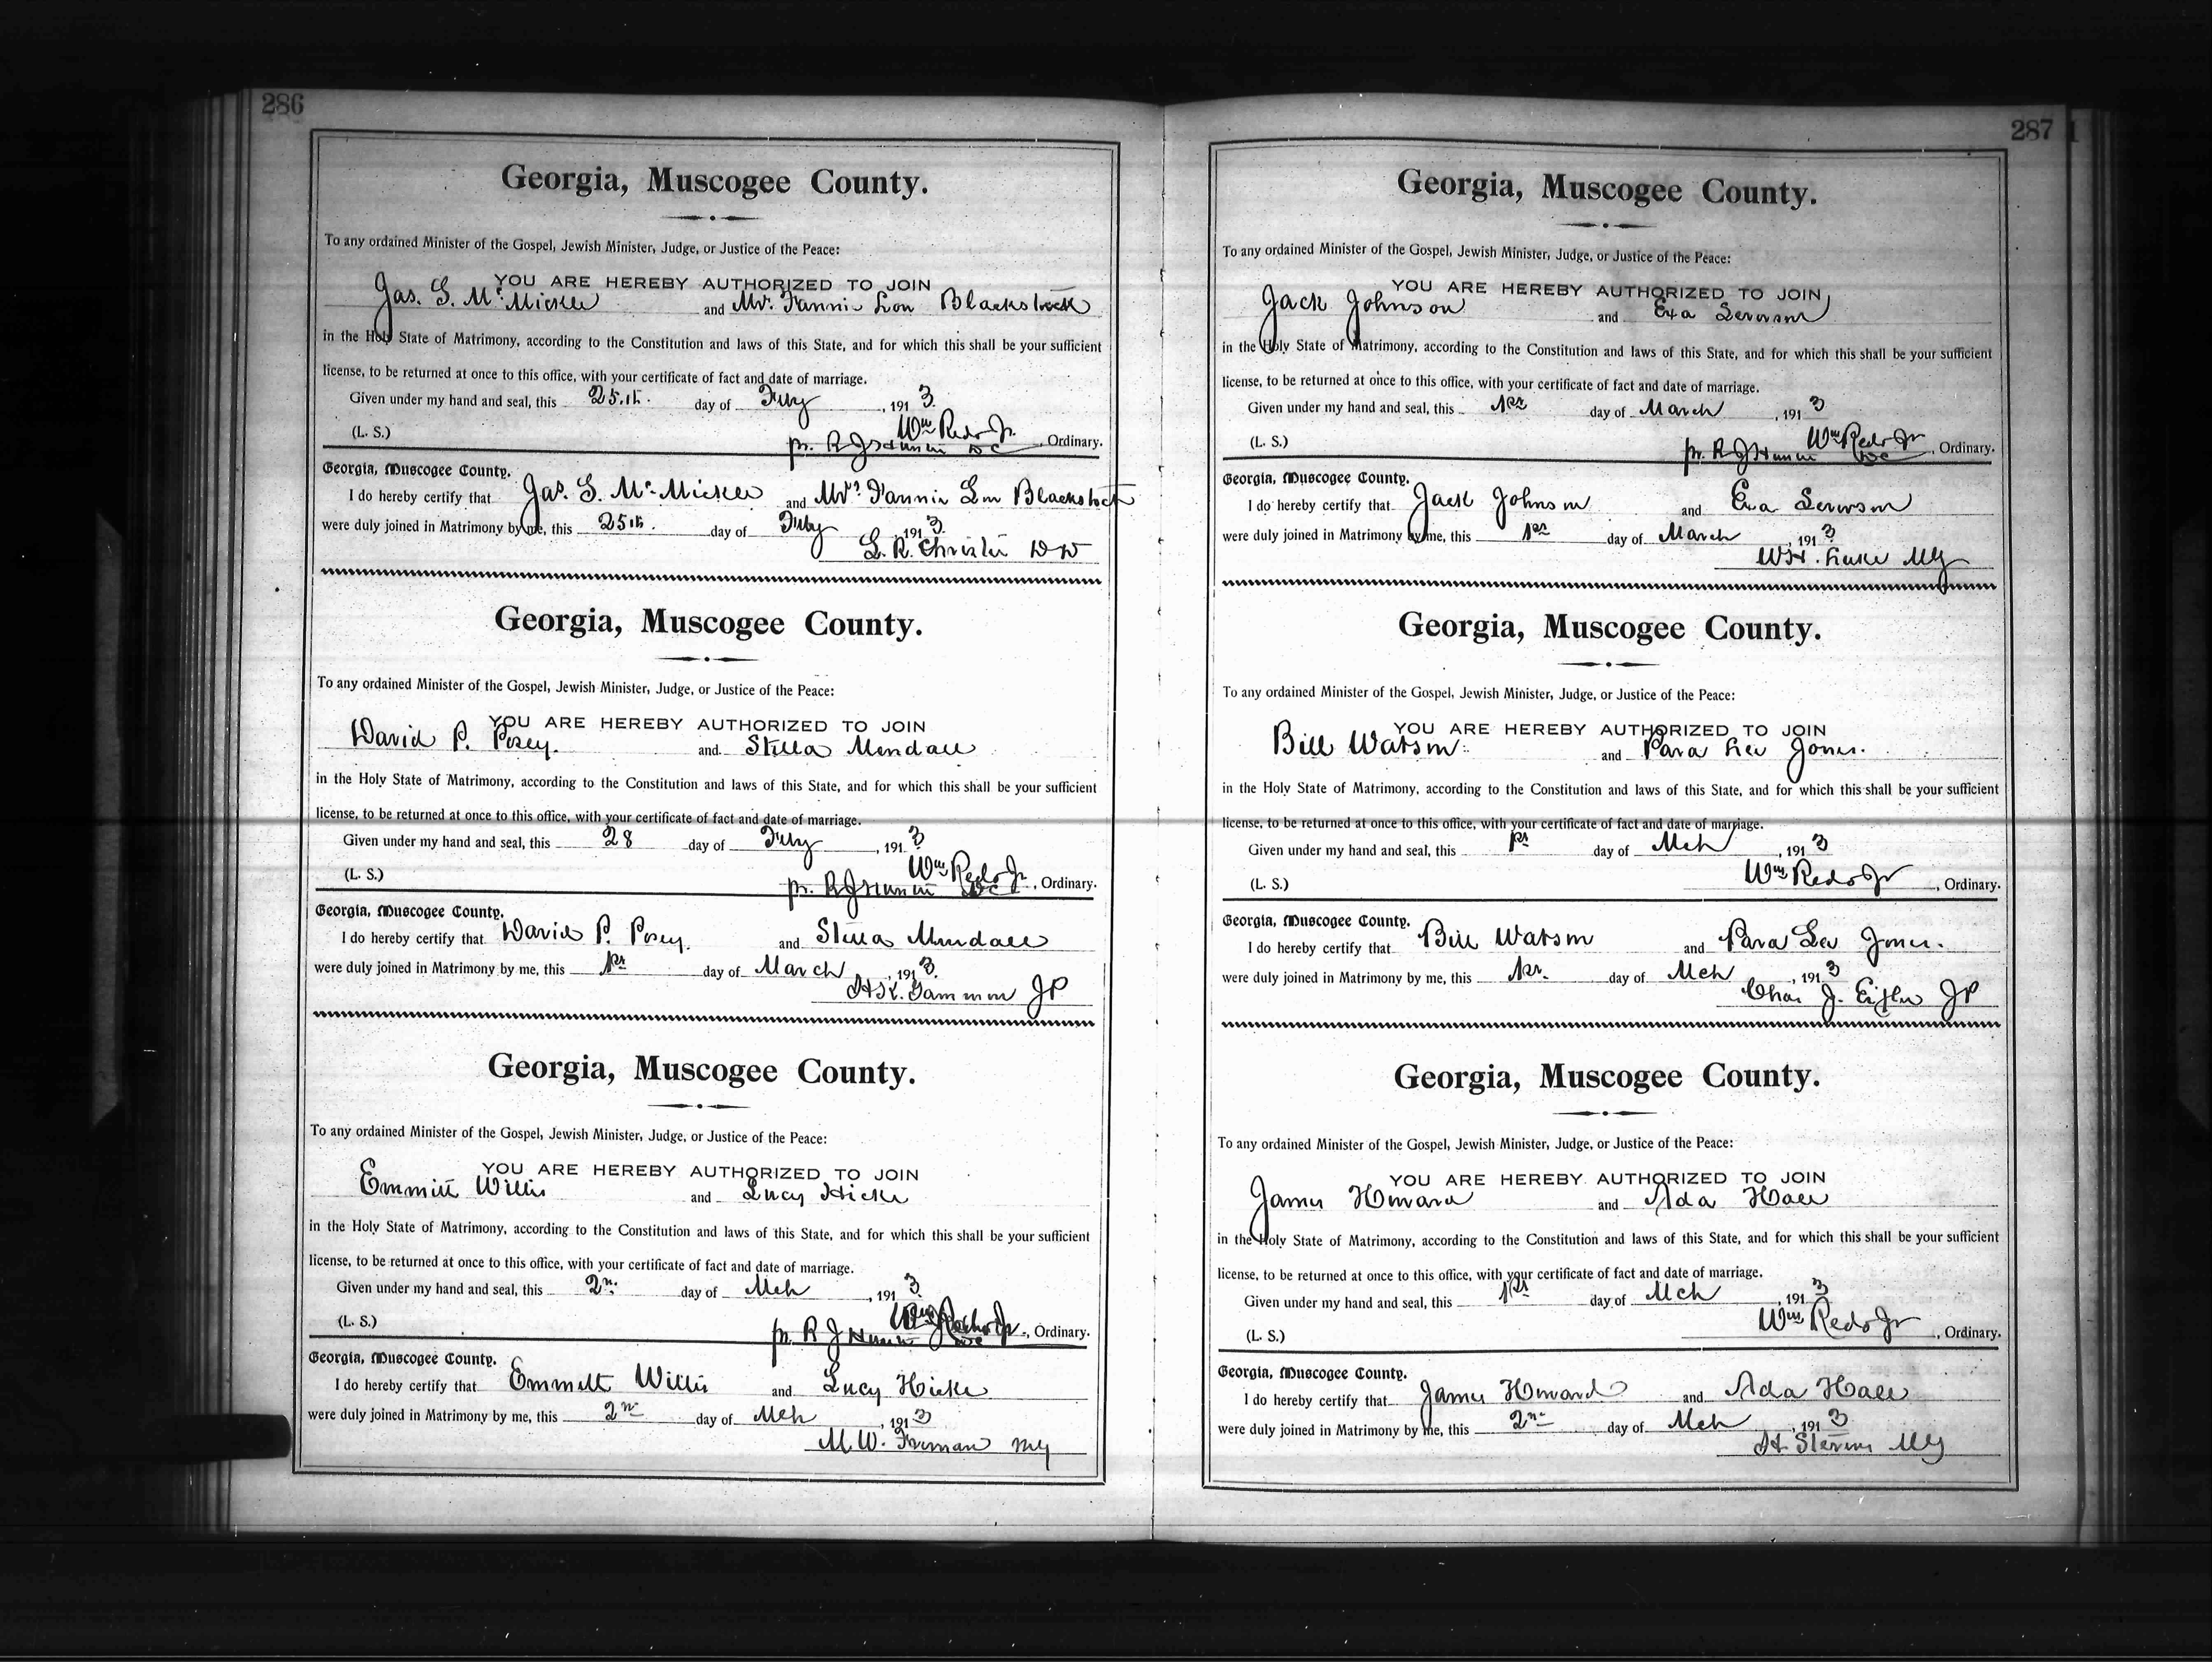 286
Georgia, Muscogee County.
To any ordained Minister of the Gospel, Jewish Minister, Judge, or Justice of the Peace:
YOU ARE HEREBY AUTHORIZED TO JOIN
Jas. S. McMickle and Mrs. Fannie Lou Blackstock
in the Holy State of Matrimony, according to the Constitution and laws of this State, and for which this shall be your sufficient
license, to be returned at once to this office, with your certificate of fact and date of marriage.
Given under my hand and seal, this 25th. day of Feby, 1913
Wm Redd Jr
(L. S.) pr. R J Hunter DC, Ordinary.
Georgia, Muscogee County.
I do hereby certify that Jas. S. McMickle and Mrs Fannie Lou Blackstock
were duly joined in Matrimony by me, this 25th. day of Feby, 1913
L. R. Christie DD
Georgia, Muscogee County.
To any ordained Minister of the Gospel, Jewish Minister, Judge, or Justice of the Peace:
YOU ARE HEREBY AUTHORIZED TO JOIN
David P. Posey. and Stella Mendall
in the Holy State of Matrimony, according to the Constitution and laws of this State, and for which this shall be your sufficient
license, to be returned at once to this office, with your certificate of fact and date of marriage.
Given under my hand and seal, this 28 day of Feby, 1913
Wm Redd Jr
(L. S.) pr. R J Hunter DC, Ordinary.
Georgia, Muscogee County.
I do hereby certify that David P. Posey. and Stella Mendall
were duly joined in Matrimony by me, this 1st day of March, 1913
Gammon JP
Georgia, Muscogee County.
To any ordained Minister of the Gospel, Jewish Minister, Judge, or Justice of the Peace:
YOU ARE HEREBY AUTHORIZED TO JOIN
Emmitt Willis and Lucy Hicks
in the Holy State of Matrimony, according to the Constitution and laws of this State, and for which this shall be your sufficient
license, to be returned at once to this office, with your certificate of fact and date of marriage.
Given under my hand and seal, this 2n. day of Mch, 1913
Wm Redd Jr
(L. S.) pr. R J Hunter DC, Ordinary.
Georgia, Muscogee County.
I do hereby certify that Emmett Willis and Lucy Hicks
were duly joined in Matrimony by me, this 2n day of Mch, 1913
M. W. Freeman MG
287
Georgia, Muscogee County.
To any ordained Minister of the Gospel, Jewish Minister, Judge, or Justice of the Peace:
YOU ARE HEREBY AUTHORIZED TO JOIN
Jack Johnson and Eva
in the Holy State of Matrimony, according to the Constitution and laws of this State, and for which this shall be your sufficient
license, to be returned at once to this office, with your certificate of fact and date of marriage.
Given under my hand and seal, this 1st day of March, 1913
Wm Redd Jr
(L. S.) pr. R J Hunter DC, Ordinary.
Georgia, Muscogee County.
I do hereby certify that Jack Johnson and Eva
were duly joined in Matrimony by me, this 1st day of March, 1913
W H. MG
Georgia, Muscogee County.
To any ordained Minister of the Gospel, Jewish Minister, Judge, or Justice of the Peace:
YOU ARE HEREBY AUTHORIZED TO JOIN
Bill Watson and Para Lee Jones.
in the Holy State of Matrimony, according to the Constitution and laws of this State, and for which this shall be your sufficient
license, to be returned at once to this office, with your certificate of fact and date of marriage.
Given under my hand and seal, this 1st day of Mch, 1913
(L. S.) Wm Redd Jr, Ordinary.
Georgia, Muscogee County.
I do hereby certify that Bill Watson and Para Lee Jones.
were duly joined in Matrimony by me, this 1st. day of Mch, 1913
Chas J. JP
Georgia, Muscogee County.
To any ordained Minister of the Gospel, Jewish Minister, Judge, or Justice of the Peace:
YOU ARE HEREBY AUTHORIZED TO JOIN
James Howard and Ada Hall
in the Holy State of Matrimony, according to the Constitution and laws of this State, and for which this shall be your sufficient
license, to be returned at once to this office, with your certificate of fact and date of marriage.
Given under my hand and seal, this 1st day of Mch, 1913
(L. S.) Wm Redd Jr, Ordinary.
Georgia, Muscogee County.
I do hereby certify that James Howard and Ada Hall
were duly joined in Matrimony by me, this 2n day of Mch, 1913
H. Stevens MG